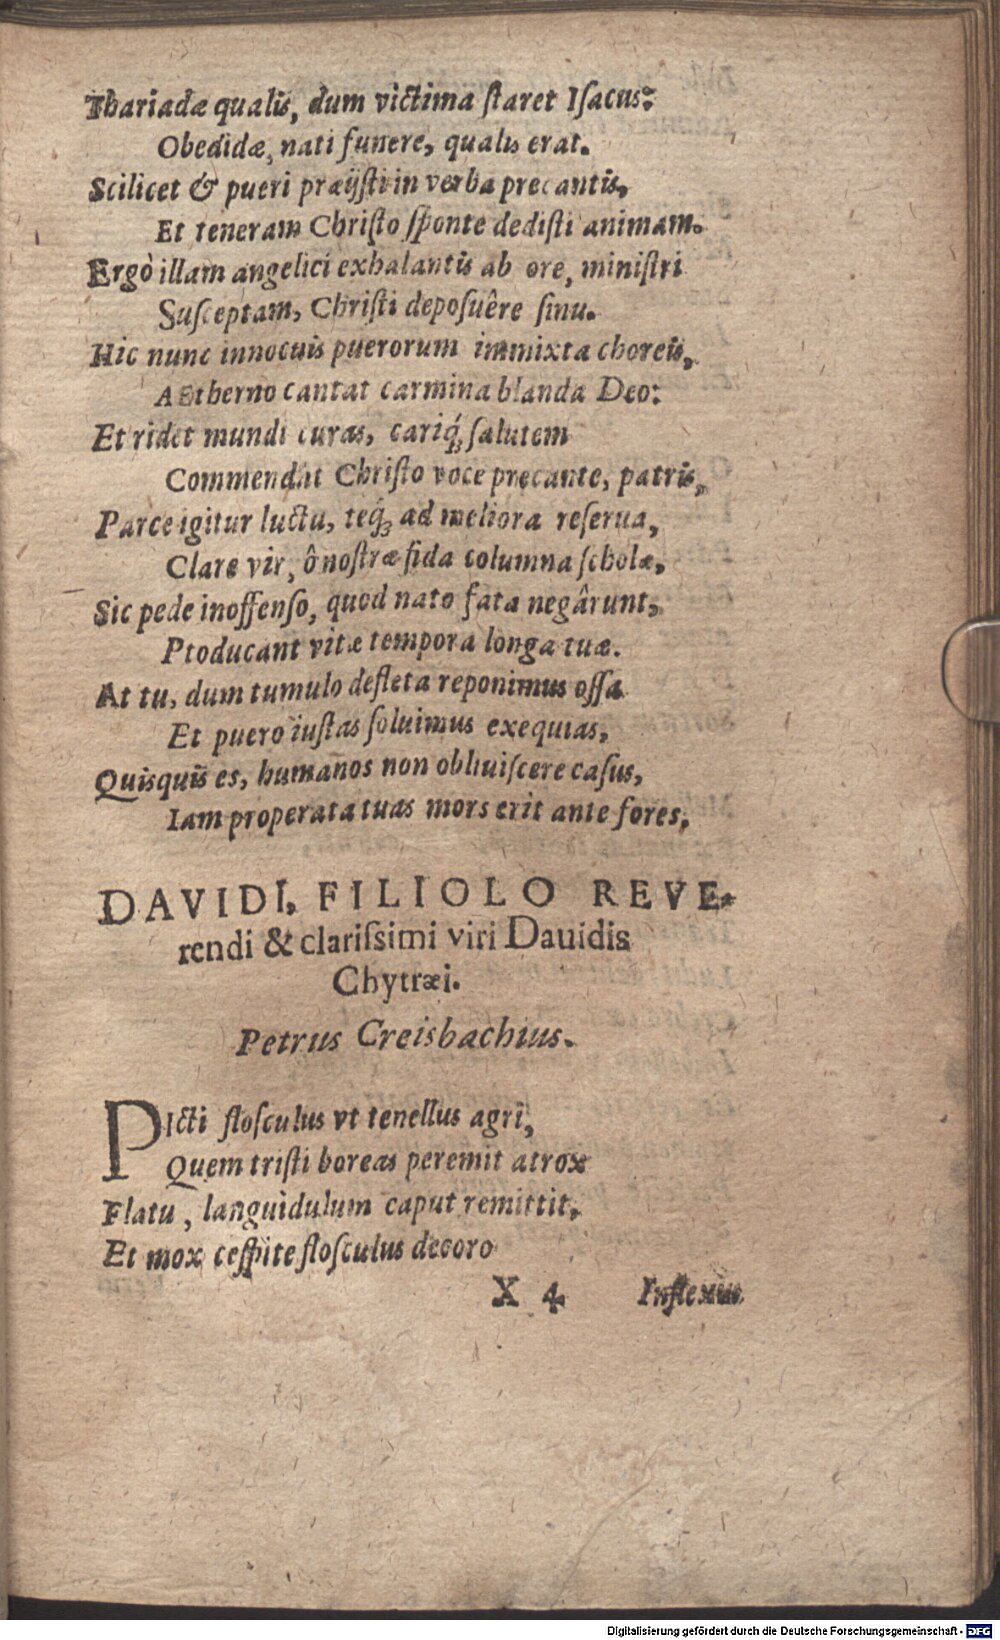 Thariadæ qualis, dum victima ſtaret Iſacus:
Obedidæ, nati funere, qualis erat.
Scilicet & pueri præijſti in verba precantis,
Et teneram Chriſto ſponte dediſti animam.
Ergò illam angelici exhalantis ab ore, miniſtri
Suſceptam, Chriſti depoſuêre ſinu.
Hic nunc innocuis puerorum immixta choreis,
AEtherno cantat carmina blanda Deo:
Et ridet mundi curas, cariq́ꝫ ſalutem
Commendat Chriſto voce precante, patris,
Parce igitur luctu, teq́ꝫ ad meliora reſerua,
Clare vir, ô noſtræ fida columna ſcholæ,
Sic pede inoffenſo, quod nato fata negârunt,
Ptoducant vitæ tempora longa tuæ.
At tu, dum tumulo defleta reponimus oſſa
Et puero iuſtas ſoluimus exequias,
Quisquis es, humanos non obliuiſcere caſus,
Iam properata tuas mors erit ante fores.
DAVIDI, FILIOLO REVE-
rendi & clariſsimi viri Dauidis
Chytræi.
Petrus Creisbachius.
PIcti floſculus vt tenellus agri,
Quem triſti boreas peremit atrox
Flatu, languidulum caput remittit,
Et mox ceſpite floſculus decoro
X 4 Inflexus
Digitalisierung gefördert durch die Deutsche Forschungsgemeinschaft - DFG